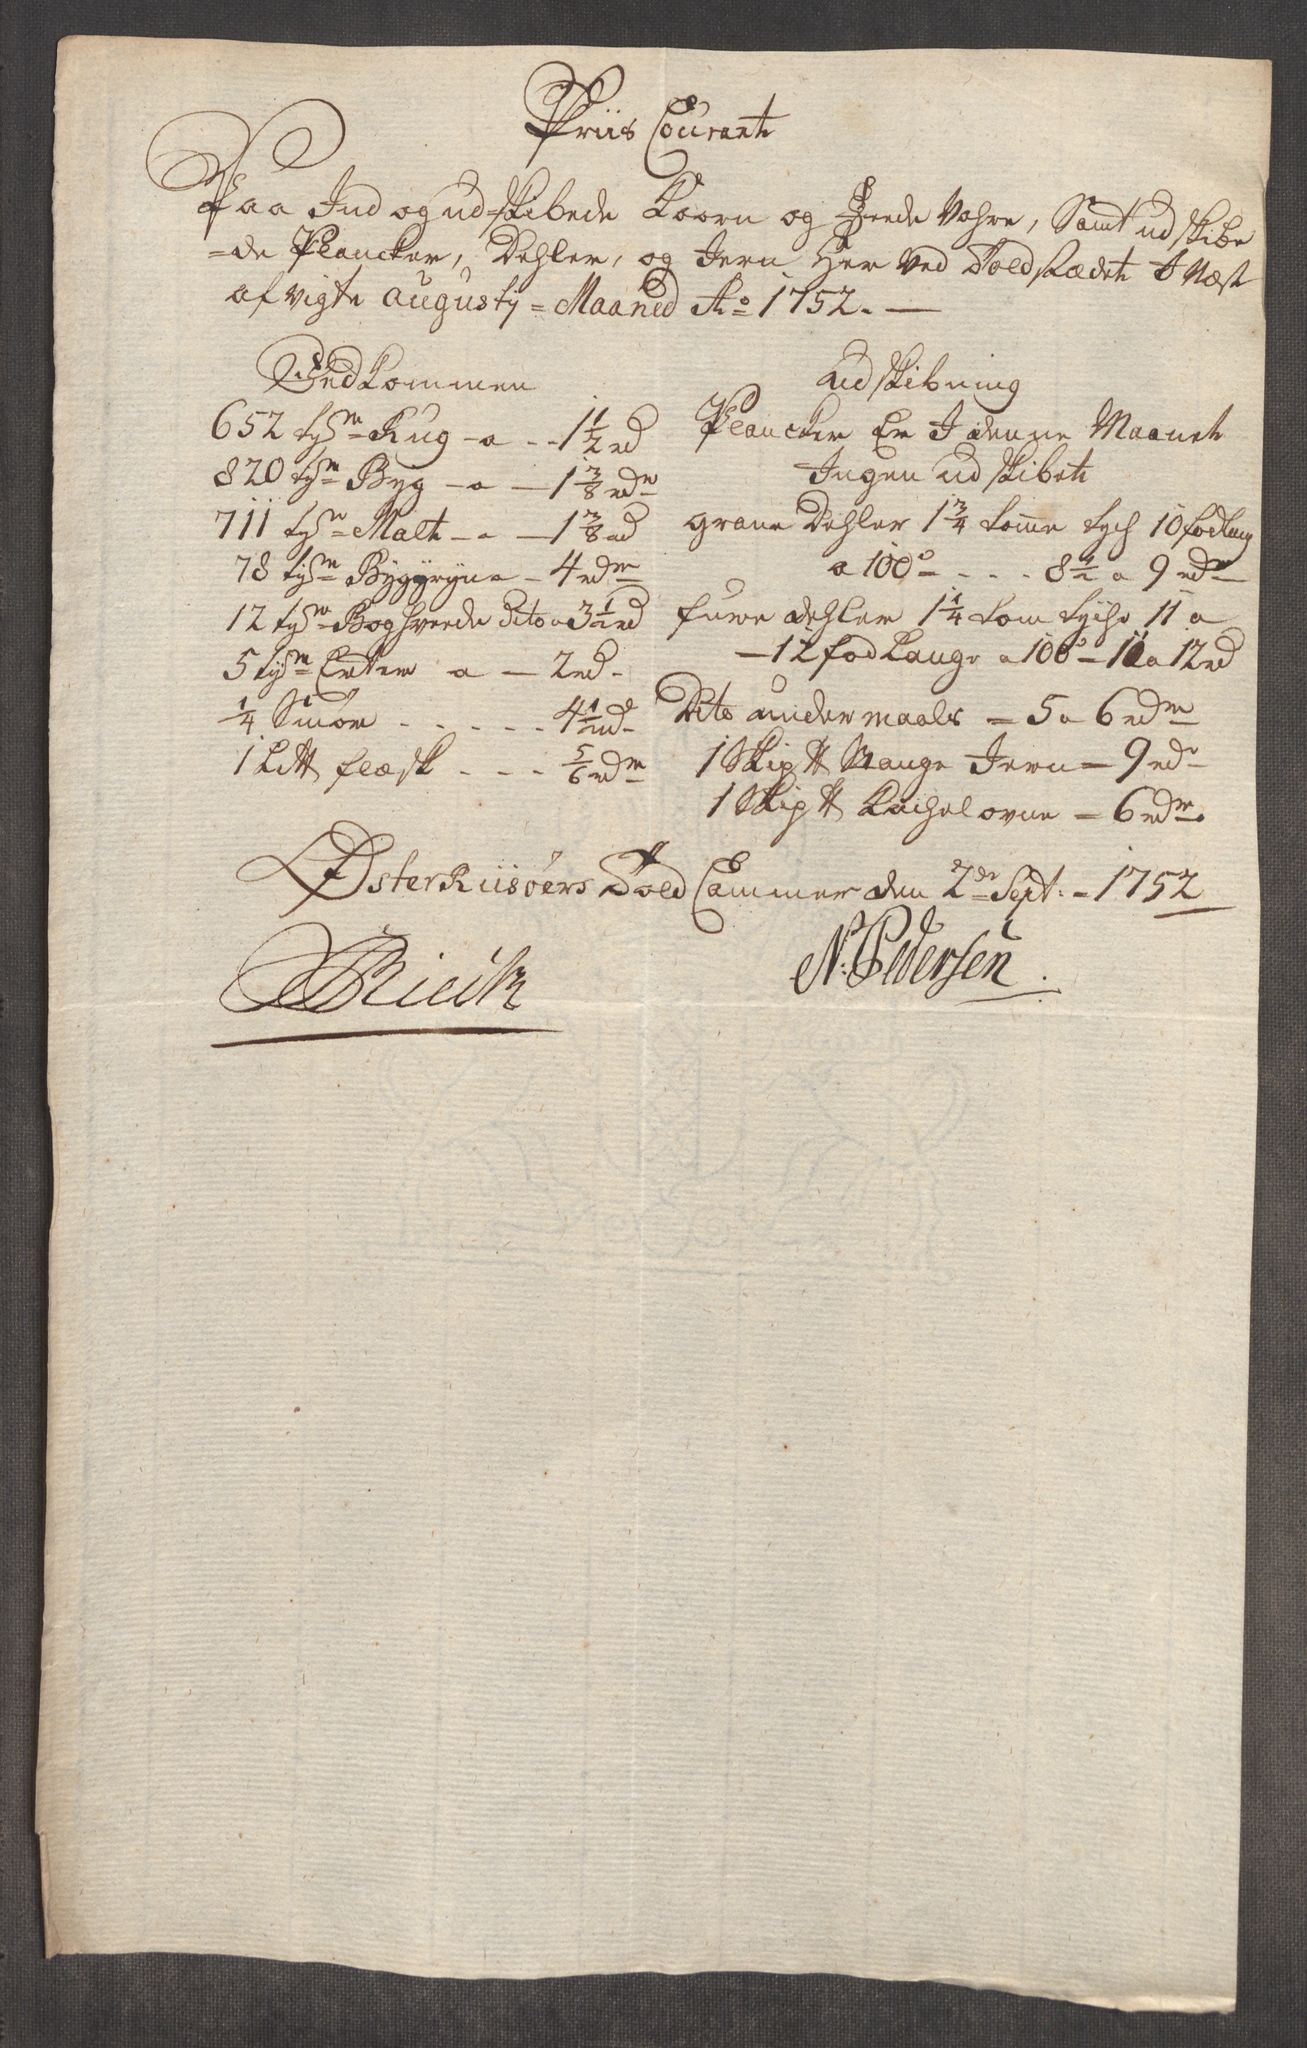 Priis Courante
Paa Ind og udskibede Koorn og Feede Vahre, Samt ud skibe
=de Plancker, Dehler, og Jern Her Ved Toldstædet I Næst
afvigte Augusty = Maaned Ao 1752. —
Indkommen
652 tør Rug - a - - 1 1/2 rd
820 tør Byg - a - 1 3/8 rdr
711 tør Malt - a - 1 3/8 rd
78 tør Byggryn a - 4 rdr
12 tør Boghvede Dito a 3 1/2 rd
5 tør Erter a - 2 rd -
1/4 Smør - - - - 4 1/2 rd -
1 L℔ flæsk - - - 5/6 rdr
Udskibning
Plancker Er I denne Maanet
Ingen udskibet
grane Dehler 1 3/4 tomme tych 10 fod lang
a 100 - - - - 8 1/2 a 9 rdr
furre dehler 1 1/4 tom tyche 11 a
- 12 fod Lange a 100 - 11 a 12 rd
Dito undermaals = 5 a 6 rdr
1 Skip ℔ Stange Jern = 9 rdr
1 Skip ℔ Kachelovne = 6 rdr.
Østerriisøers Told Cammer den 2de Sept: - 1752
N: Pedersen.